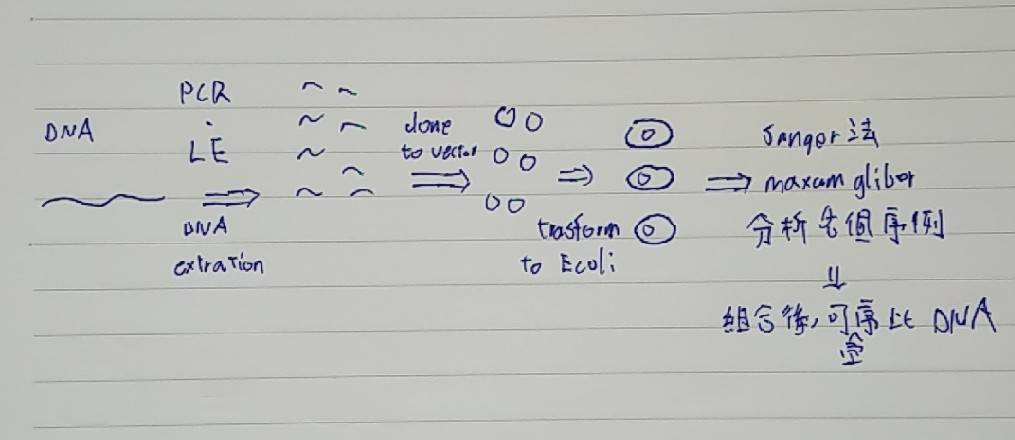 DNA
PCR
LE
DNA
extration
clone
to vector
trasform
to Ecoli
Sanger法
maxam gliber
分析各個序列
組合後,可定序此 DNA